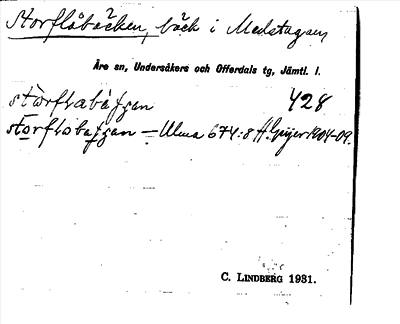 Storflåbäcken, bäck i Medstugan
Åre sn, Undersåkers och Offerdals tg, Jämtl. l.
storflabaggan 428
storflobaggan – Ulma 674:8 H. Geijer 1904-09.
C. LINDBERG 1931.